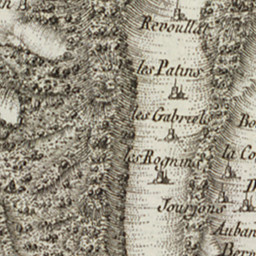 Revoulla
les Patins
les Gabriels
les Rognins
la Co
Jourjons
Auban
Ber